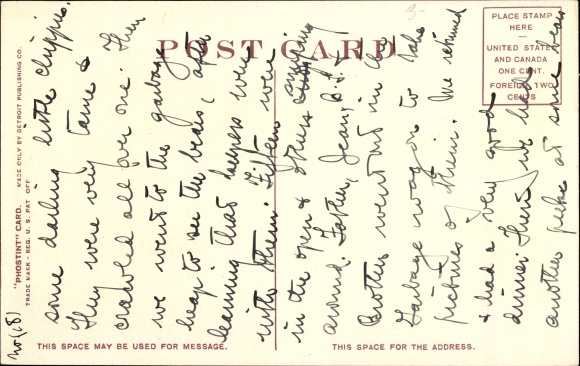 POST CARD
PLACE STAMP
HERE
UNITED STATES
AND CANADA
ONE CENT.
FOREIGN TWO
CENTS
"PHOSTINT" CARD. MADE ONLY BY DETROIT PUBLISHING CO.
TRADE MARK - REG. U. S. PAT. OFF
THIS SPACE MAY BE USED FOR MESSAGE.
THIS SPACE FOR THE ADDRESS.
No (18)
some darling little chippies.
They were very tame &
crawled all over one. Then
we went to the garbage
heap to see the bears, after
learning that keepers were
with them. Fifteen were
in the open & others
around. Father, Jean,
Brother went out in the
Garbage wagon to take
pictures of them. We returned
& had a very good
dinner. Then we had
another at some bears